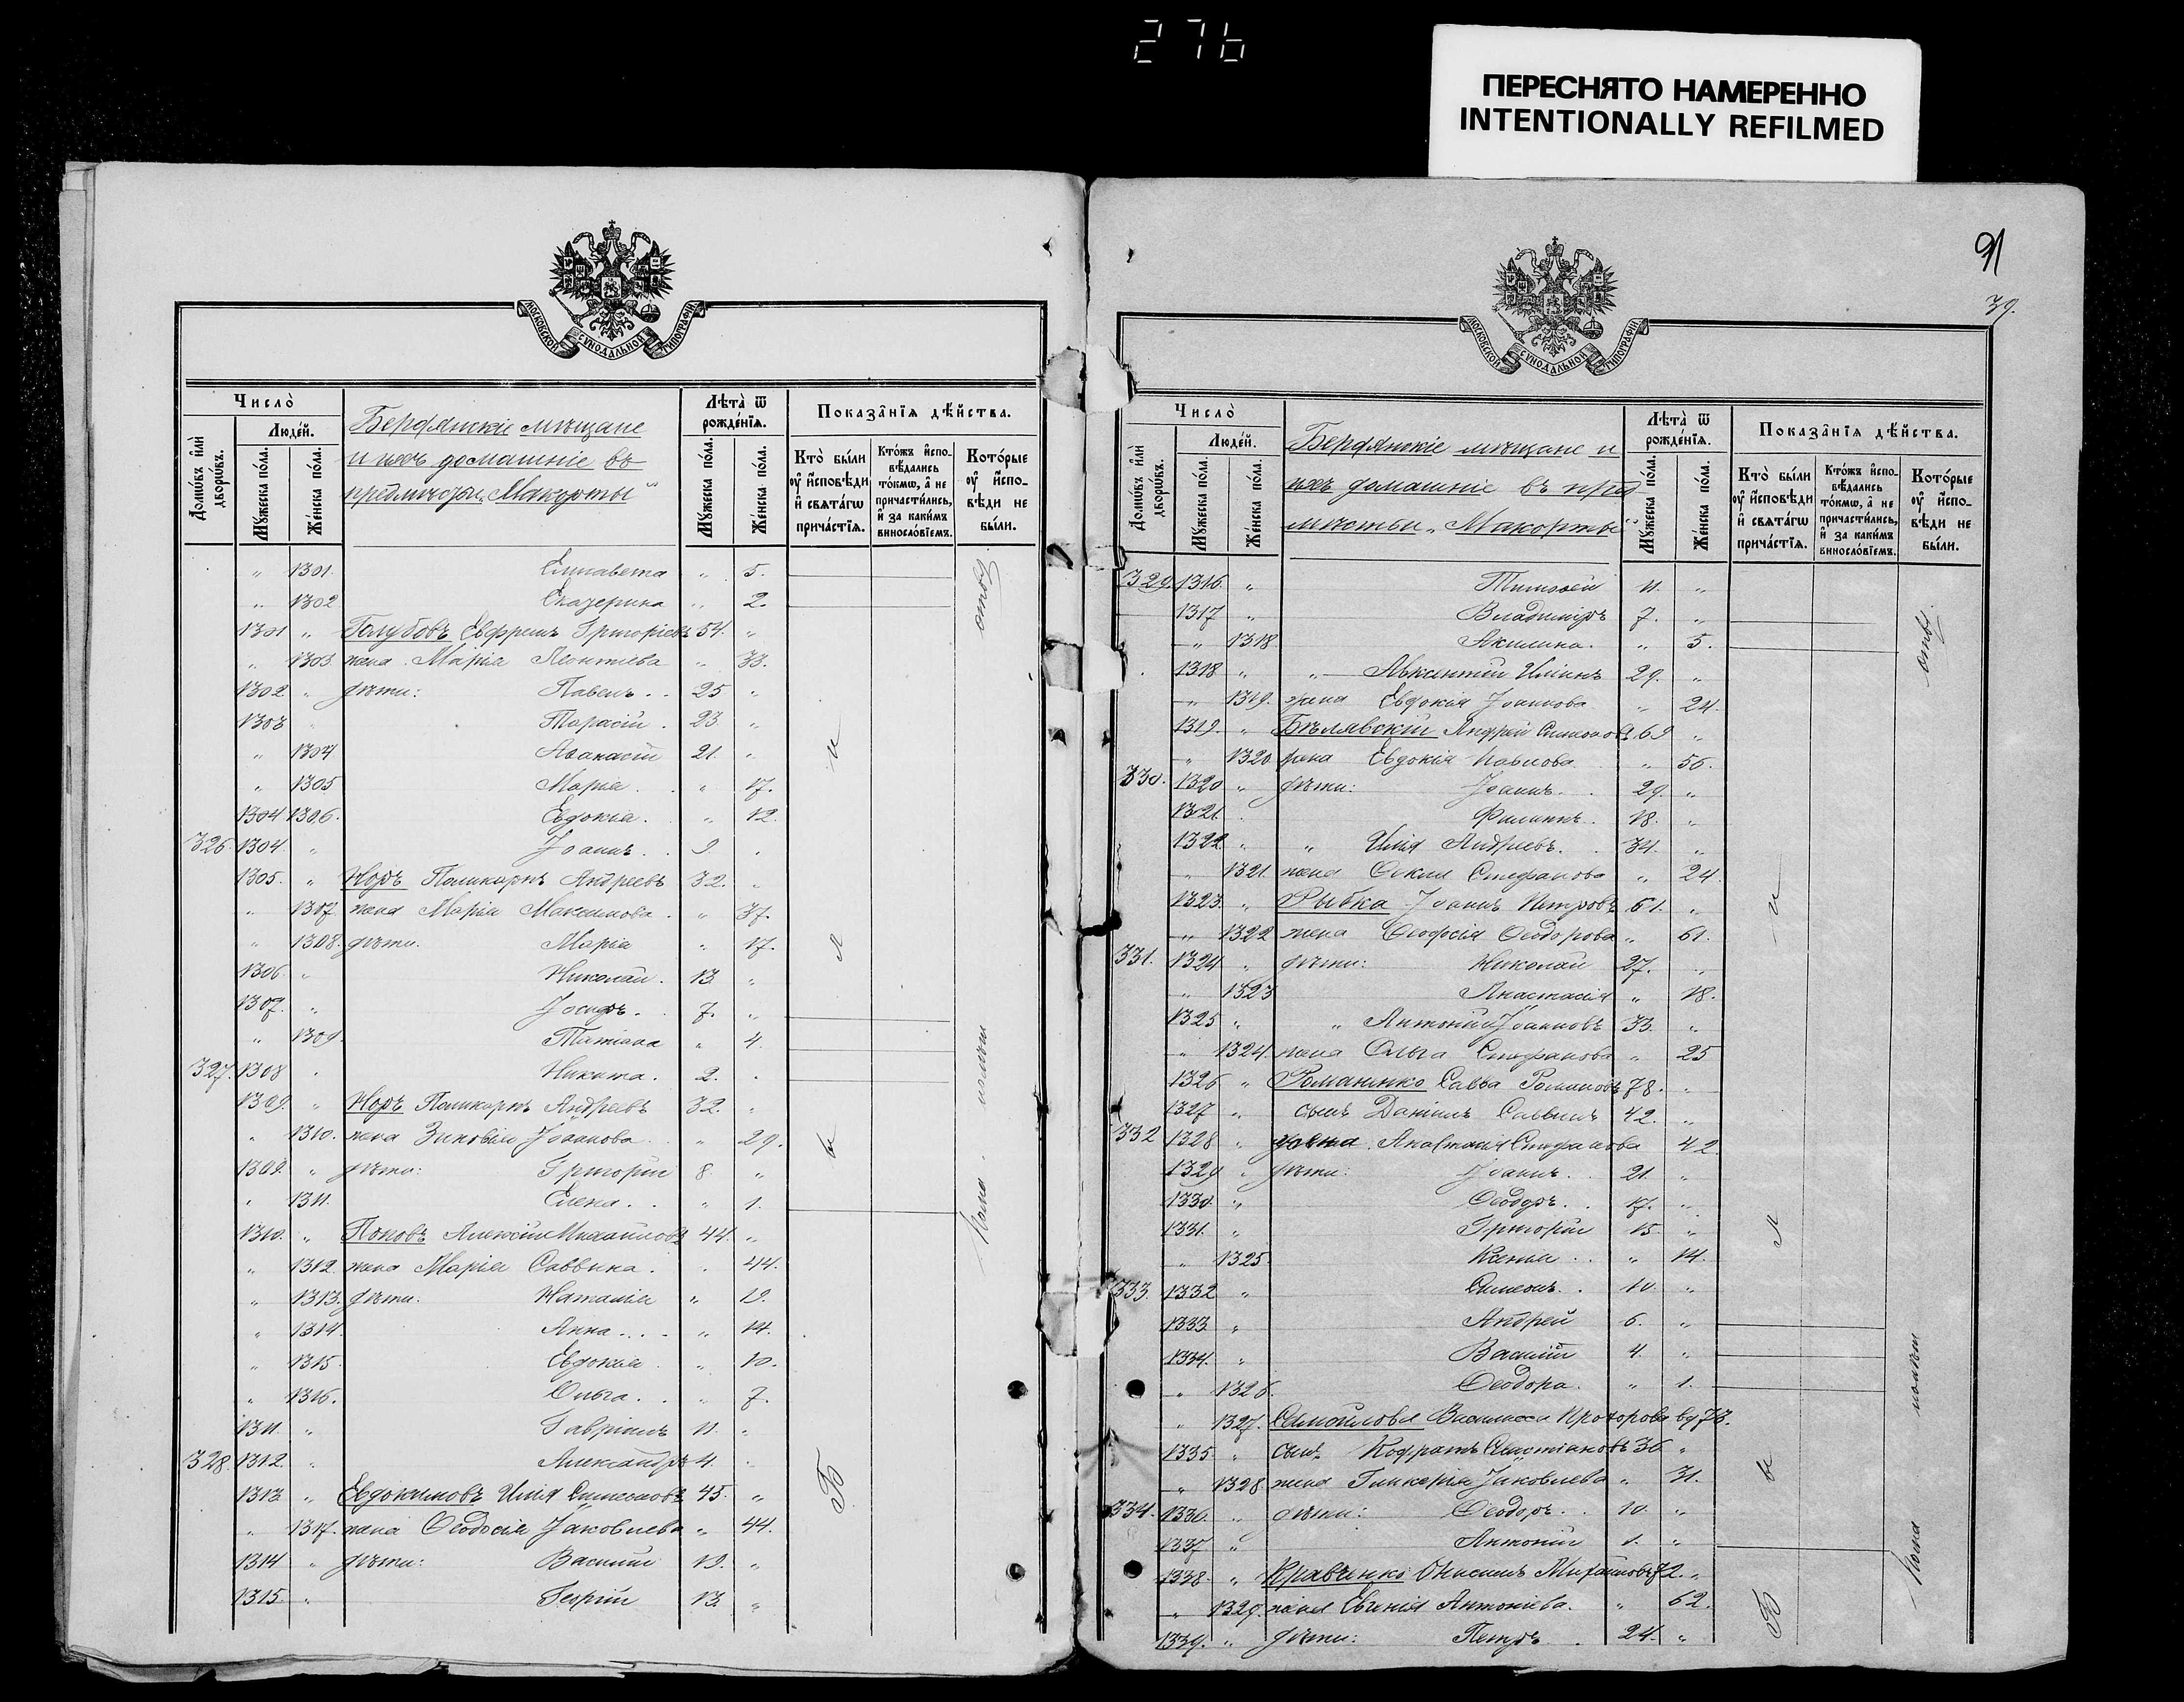 276
ПЕРЕСНЯТО НАМЕРЕННО
INTENTIONALLY REFILMED
МОСКОВСКОЙ СѴНОДАЛЬНОЙ ТИПОГРАФІИ.
Число̀
Людéй.
Домѡвъ и҆лѝ дворѡвъ.
Мꙋжеска пóла.
Жéнска пóла.
Бердянскіе мѣщане
и ихъ домашніе въ
предмѣстьи „Макорты"
Лѣта̀ ѿ рождéнїѧ.
Мꙋжеска пóла.
Жéнска пóла.
Показа̑нїѧ дѣ́йства.
Кто̀ бы́ли оу҆ и҆сповѣди и҆ свѧта́гѡ прича́стїѧ.
Кто́жъ и҆спо-вѣ́дались то́кмѡ, а҆ не причасти́лись, и҆ за каки́мъ винослóвїемъ.
Кото́рые оу҆ и҆спо-вѣди не бы́ли.
„ 1301. Елисавета „ 5.
„ 1302 Екатерина „ 2.
1301 „ Голубовъ Евфремъ Григоріевъ 54. „
„ 1303 жена Марія Леонтіева „ 33.
1302 „ дѣти: Павелъ 25 „
1303 Тарасій 23 „
„ 1304 Аѳанасій 21. „
„ 1305 Марія „ 17.
1304 1306. Евдокія „ 12.
326. 1304. „ Іоаннъ 9 „
1305. „ Норъ Поликарпъ Андреевъ 32. „
„ 1307. жена Марія Максимова „ 37.
„ 1308. дѣти. Марія „ 17.
1306. „ Николай 13 „
1307. „ Іосифъ 7. „
„ 1309. Татіана „ 4.
327. 1308 Никита 2. „
1309. „ Норъ Поликарпъ Андреевъ 32. „
„ 1310. жена Зиновія Іоаннова „ 29.
1309. „ дѣти: Григорій 8 „
„ 1311. Елена „ 1.
1310. „ Поповъ Алексій Михайловъ 44. „
„ 1312. жена Марія Саввина „ 44.
„ 1313. дѣти: Наталія „ 19.
„ 1314. Анна „ 14.
„ 1315. Евдокія „ 10.
„ 1316. Ольга „ 7.
1311. „ Гавріилъ 11. „
328. 1312. „ Александръ 4. „
1313. „ Евдокимовъ Илія Симеоновъ 45. „
„ 1317. жена Ѳеодосія Іаковлева „ 44.
1314 „ дѣти: Василій 19. „
1315. „ Георгій 13 „
Б ы л и
91
39.
МОСКОВСКОЙ СѴНОДАЛЬНОЙ ТИПОГРАФІИ.
Число̀
Людéй.
Домѡвъ и҆лѝ дворѡвъ.
Мꙋжеска пóла.
Жéнска пóла.
Бердянскіе мѣщане и
ихъ домашніе въ пред
мѣстьи „Макорты"
Лѣта̀ ѿ рождéнїѧ.
Мꙋжеска пóла.
Жéнска пóла.
Показа̑нїѧ дѣ́йства.
Кто̀ бы́ли оу҆ и҆сповѣди и҆ свѧта́гѡ прича́стїѧ.
Кто́жъ и҆спо-вѣ́дались то́кмѡ, а҆ не причасти́лись, и҆ за каки́мъ винослóвїемъ.
Кото́рые оу҆ и҆спо-вѣди не бы́ли.
329. 1316. „ Тимоѳей 11. „
1317 „ Владиміръ 7. „
„ 1318. Акилина „ 5.
1318 „ „ Авксентій Иліинъ 29. „
„ 1319. жена Евдокія Іоаннова „ 24.
1319. „ Бѣлявскій Андрей Симоновъ 69 „
„ 1320. жена Евдокія Павлова „ 56.
330. 1320 „ дѣти: Іоаннъ 29. „
1321 Филиппъ 18. „
1322 „ „ Илія Андреевъ 34. „
„ 1321. жена Ѳекла Стефанова „ 24.
1323. „ Рыбка Іоаннъ Петровъ 61. „
„ 1322 жена Ѳеодосія Ѳеодорова „ 61.
331. 1324 „ дѣти: Николай 27. „
„ 1323 Анастасія „ 18.
1325 „ „ Антоній Іоанновъ 33. „
„ 1324. жена Ольга Стефанова „ 25
1326 „ Романенко Савва Романовъ 78. „
1327 „ сынъ Даніилъ Саввинъ 42. „
332 1328 „ жена Анастасія Стефанова 42.
1329 „ дѣти: Іоаннъ 21. „
1330. „ Ѳеодоръ 17. „
1331. „ Григорій 15. „
„ 1325. Ксенія „ 14.
333. 1332 „ Симеонъ 10. „
1333 „ Андрей 6. „
1334. „ Василій 4. „
„ 1326. Ѳеодора „ 1.
„ 1327. Самойлова Василисса Прохорова вд 73.
1335. „ сынъ Кодратъ 36 „
„ 1328 жена Гликерія Іаковлева „ 31.
334. 1336. „ дѣти: Ѳеодоръ 10. „
1337. „ Антоній 1. „
1338. „ Кравченко Онисимъ Михайловъ 72. „
„ 1329. жена Евгенія Антоніева. „ 62.
1339. „ дѣти: Петръ 24. „
Б ы л и